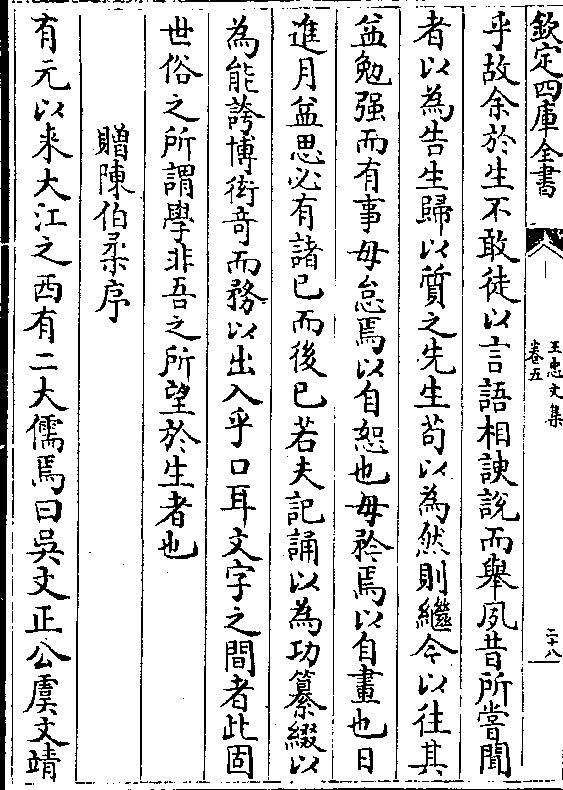 欽定四庫全書
王忠文集
卷五
二十八
乎故余於生不敢徒以言語相諛說而舉夙昔所嘗聞
者以為告生歸以質之先生苟以為然則繼今以往其
益勉强而有事毋怠焉以自恕也毋矜焉以自畫也日
進月益思必有諸已而後已若夫記誦以為功纂綴以
為能誇博衒竒而務以出入乎口耳文字之間者此固
世俗之所謂學非吾之所望於生者也
贈陳伯柔序
有元以来大江之西有二大儒焉曰吳文正公虞文靖